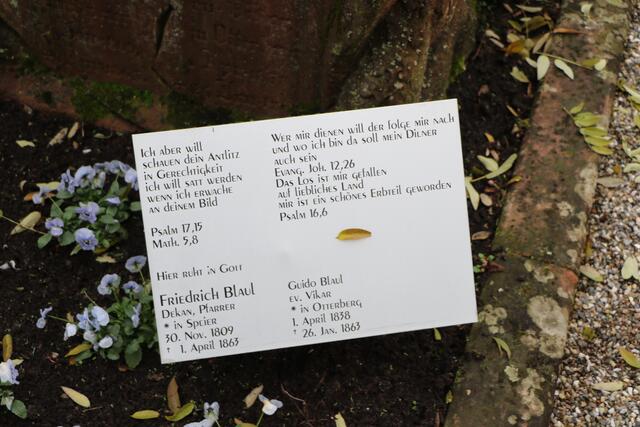 Ich aber will
schauen dein Antlitz
in Gerechtigkeit
ich will satt werden
wenn ich erwache
an deinem Bild
Psalm 17,15
Math. 5,8
Wer mir dienen will der folge mir nach
und wo ich bin da soll mein Diener
auch sein
Evang. Joh. 12,26
Das Los ist mir gefallen
auf liebliches Land
mir ist ein schönes Erbteil geworden
Psalm 16,6
Hier ruht in Gott
Friedrich Blaul
Dekan, Pfarrer
* in Speier
30. Nov. 1809
† 1. April 1863
Guido Blaul
ev. Vikar
* in Otterberg
1. April 1838
† 26. Jan. 1863